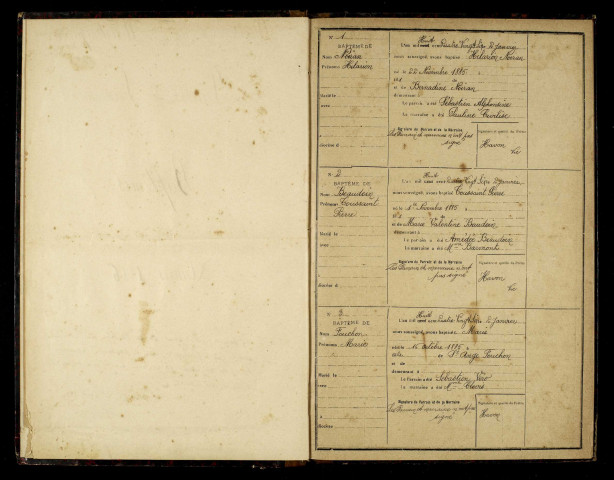 N° 1
BAPTÊME DE
Nom Néran
Prénoms Hilarion
Marié le
avec
à
Décédé d
L'an mil Huit cent Quatre Vingt Six 2 Janvier
nous soussigné avons baptisé Hilarion Néran
né le 22 Novembre 1885
et de Bernadine Néran
demeurant à
Le parrain a été Sébastien Alphonsine
La marraine a été Pauline
Signature du Parrain et de la Marraine
Les Parrain et marraine n'ont pas
signé
Signature et qualité du Prêtre
Havon
Vic
N° 2
BAPTÊME DE
Nom Beaudoin
Prénoms Toussaint
Pierre
Marié le
avec
à
Décédé d
L'an mil Huit cent Quatre Vingt Six 2 Janvier
nous soussigné avons baptisé Toussaint Pierre
né le 1er Novembre 1885
et de Marie Valentine Baudoin
demeurant à
Le parrain a été Amédée Beaudoin
La marraine a été Mme
Signature du Parrain et de la Marraine
Les Parrain et marraine n'ont
pas signé
Signature et qualité du Prêtre
Havon
Vic
N° 3
BAPTÊME DE
Nom Fouchon
Prénoms Marie
Marié le
avec
à
Décédée
L'an mil Huit cent Quatre Vingt Six 2 Janvier
nous soussigné avons baptisé Marie
née le 15 Octobre 1885
de St Ange Fouchon
et de
demeurant à
Le Parrain a été Sébastien
La marraine a été Mme
Signature du Parrain et de la Marraine
Les Parrain et marraine n'ont pas
signé
Signature et qualité du Prêtre
Havon